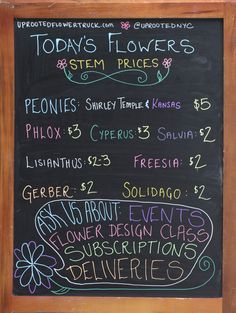 UPROOTEDFLOWERTRUCK.COM @UPROOTEDNYC
TODAY'S FLOWERS
STEM PRICES
PEONIES: SHIRLEY TEMPLE & KANSAS $5
PHLOX: $3 CYPERUS: $3 SALVIA: $2
LISIANTHUS: $2-3 FREESIA: $2
GERBER: $2 SOLIDAGO: $2
ASK US ABOUT: EVENTS
FLOWER DESIGN CLASS
SUBSCRIPTIONS
DELIVERIES